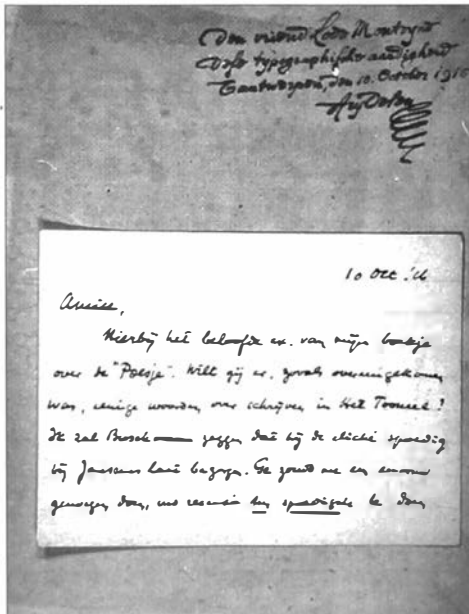 Den vriend Lode Monteyne
deze typographische aardigheid
T'antwerpen, den 10. October 1916
Ary Delen
10 Oct '16
Amice,
Hierbij het beloofde ex. van mijn boekje
over de "Poesje". Wilt gij er, zooals overeengekomen
was, eenige woorden over schrijven in Het Tooneel?
Ik zal zeggen dat hij de cliché spoedig
bij Janssens laat bezorgen. Ge zoudt me een enorm
genoegen doen, uw recensie ten spoedigste te doen